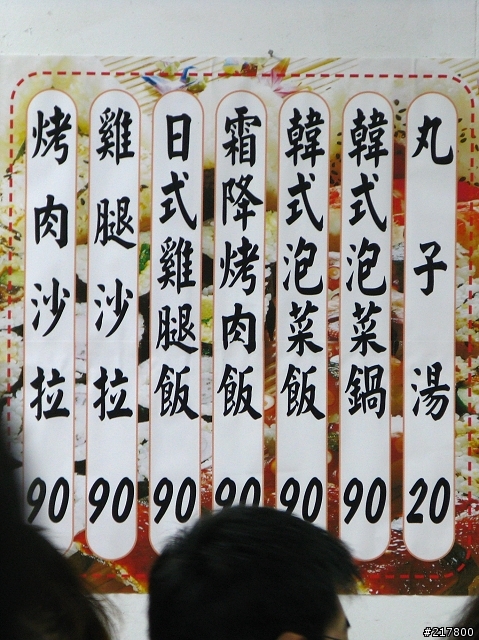 丸子湯 20
韓式泡菜鍋 90
韓式泡菜飯 90
霜降烤肉飯 90
日式雞腿飯 90
雞腿沙拉 90
烤肉沙拉 90
#217800